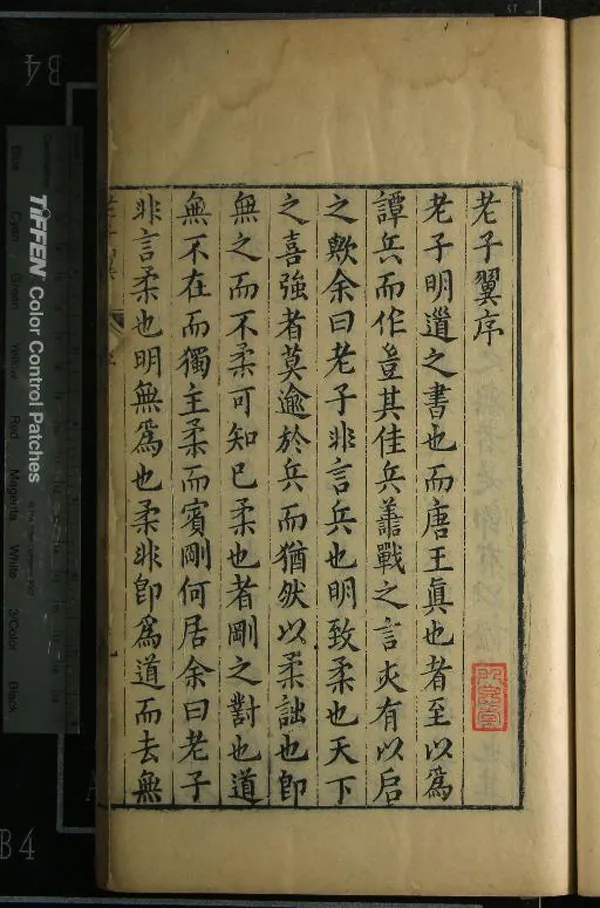 老子翼序
老子明道之書也而唐王眞也者至以爲
譚兵而作豈其佳兵善戰之言亦有以启
之歟余曰老子非言兵也明致柔也天下
之喜強者莫逾於兵而猶然以柔詘也即
無之而不柔可知已柔也者剛之對也道
無不在而獨主柔而賓剛何居余曰老子
非言柔也明無爲也柔非即爲道而去無
TIFFEN Color Control Patches
Blue Cyan Green Yellow Red Magenta White 3/Color Black
B4
B4